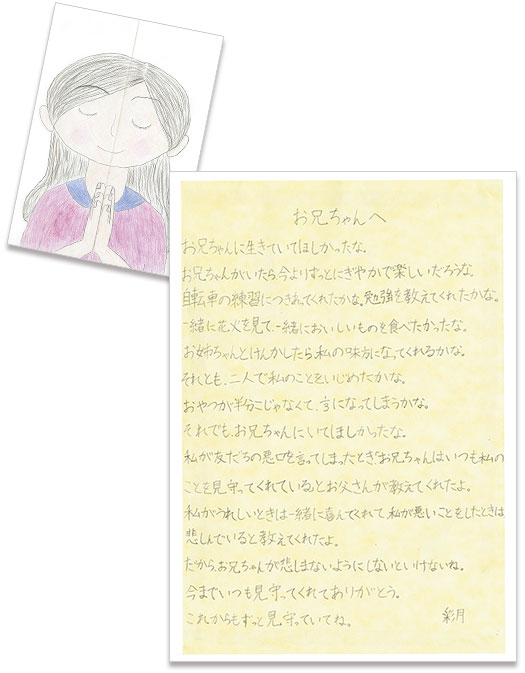 お兄ちゃんへ
お兄ちゃんに生きていてほしかったな。
お兄ちゃんがいたら、今よりずっとにぎやかで楽しいだろうな。
自転車の練習につきあってくれたかな。勉強を教えてくれたかな。
一緒に花火を見て、一緒においしいものを食べたかったな。
お姉ちゃんとけんかしたら、私の味方になってくれるかな。
それとも、二人で私のことをいじめたかな。
おやつが半分こじゃなくて、⅓になってしまうかな。
それでも、お兄ちゃんにいてほしかったな。
私が友だちの悪口を言ってしまったとき、「お兄ちゃんはいつも私の
ことを見守ってくれている」とお父さんが教えてくれたよ。
私がうれしいときは一緒に喜んでくれて、私が悪いことをしたときは
悲しんでいると教えてくれたよ。
だから、お兄ちゃんが悲しまないようにしないといけないね。
今までいつも見守ってくれてありがとう。
これからもずっと見守っていてね。 彩月